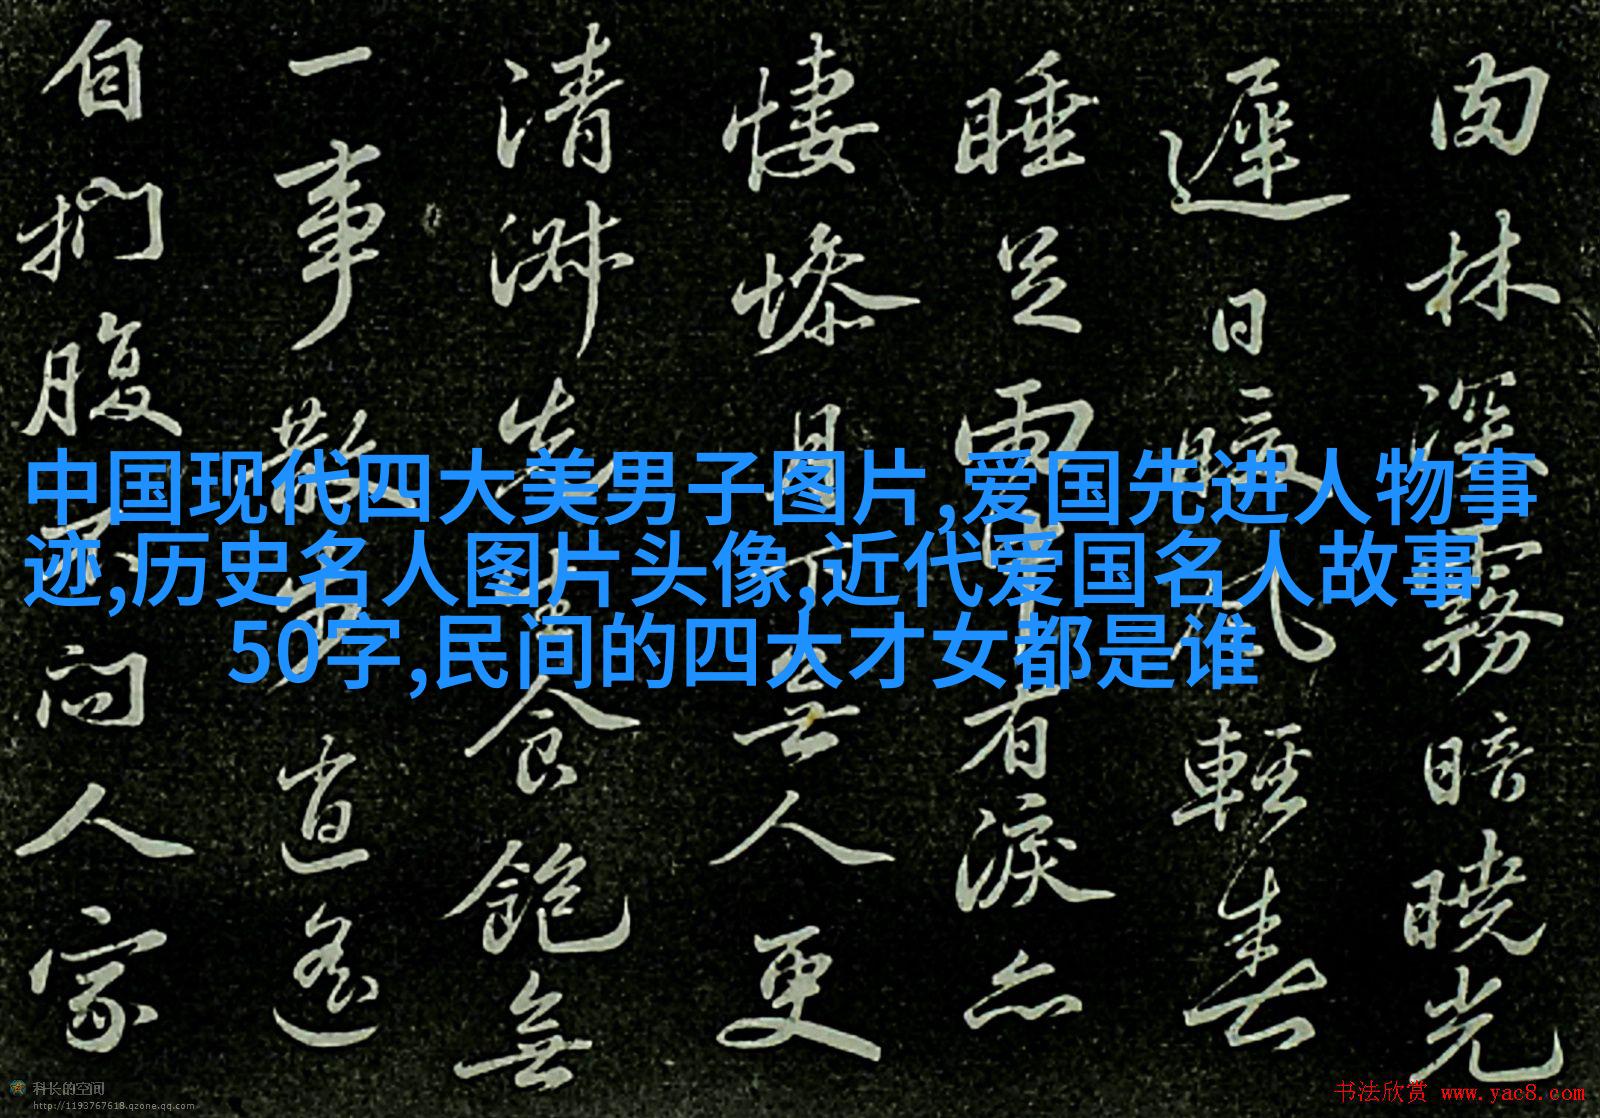 中国现代四大美男子图片,爱国先进人物事
迹,历史名人图片头像,近代爱国名人故事
50字,民间的四大才女都是谁
肉林深霧暗曉光
遲日暖風輕春
睡足雨中有淚亦
悽慘月下無人更
清淑先生食飽無
一事散步逍遙
自捫腹不問人家
科长的空间
http://1193767618.qzone.qq.com
书法欣赏 www.yac8.com